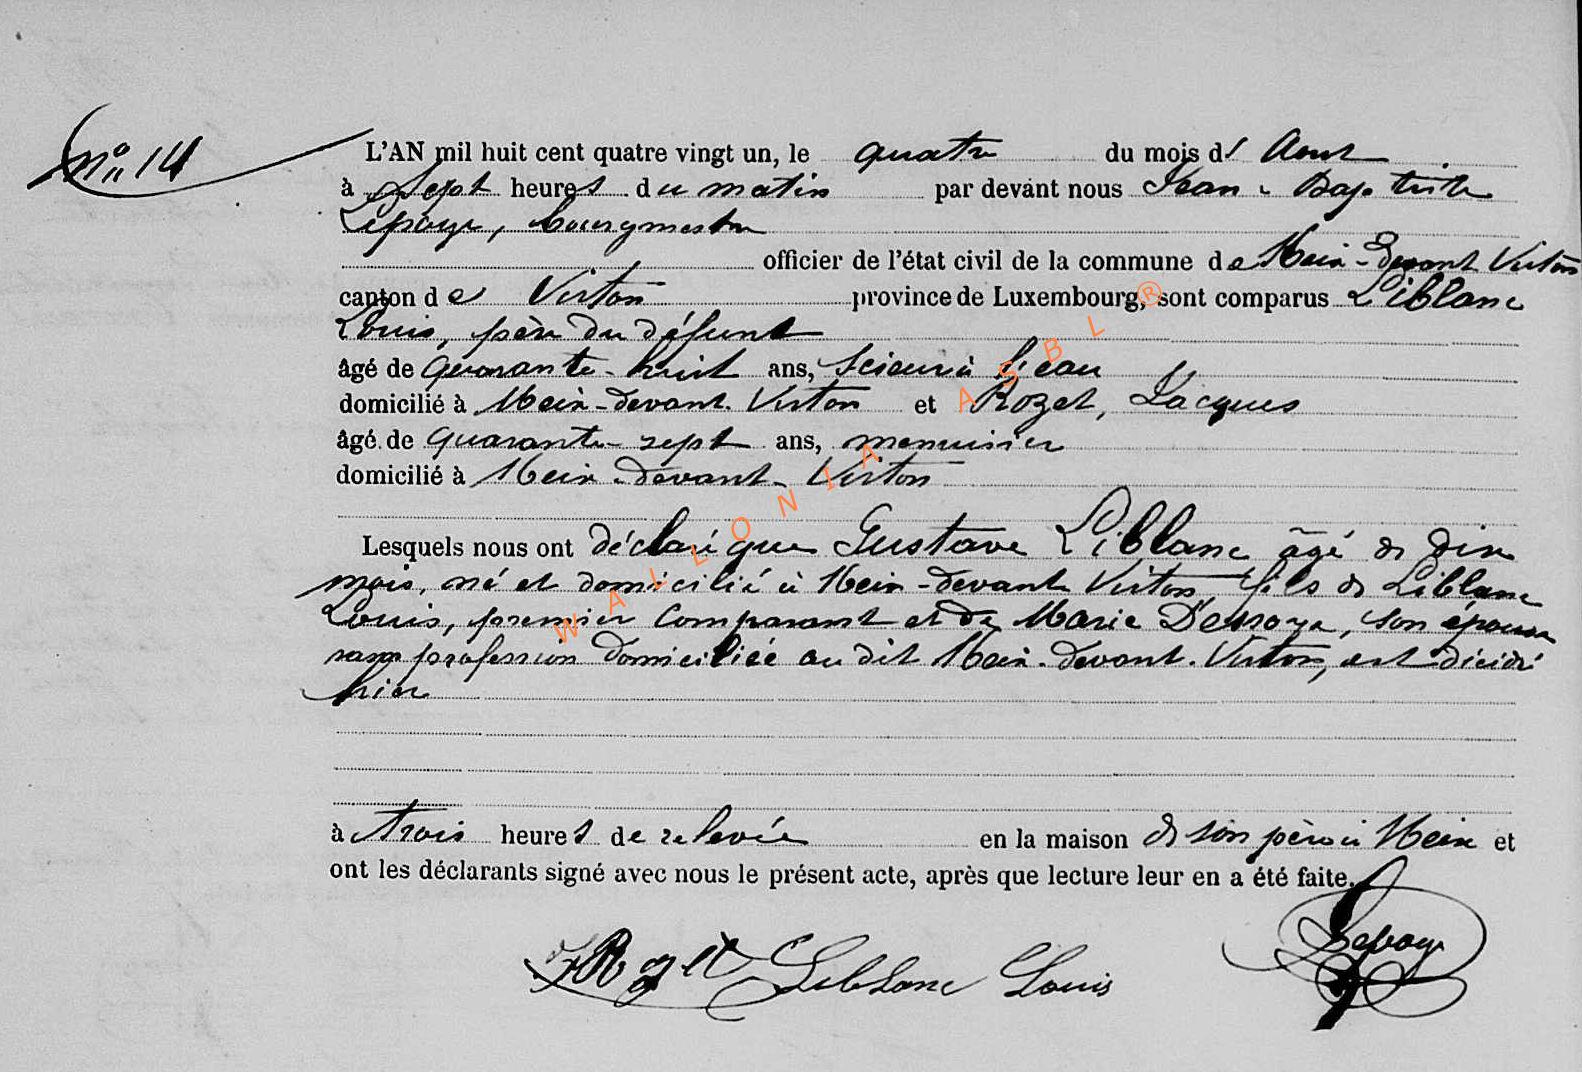 N° 14
L'AN mil huit cent quatre vingt un, le quatre du mois d' Aout
à Sept heures du matin par devant nous Jean-Baptiste
Lepage, bourgmestre
officier de l'état civil de la commune de Meix-devant Virton
canton de Virton province de Luxembourg, sont comparus Leblanc
Louis, père du défunt
âgé de quarante-huit ans, Scieur à l'eau
domicilié à Meix-devant Virton et Rozet, Jacques
âgé de quarante-sept ans, menuisier
domicilié à Meix-devant-Virton
Lesquels nous ont déclaré que Gustave Leblanc âgé de dix
mois, né et domicilié à Meix-devant Virton, fils de Leblanc
Louis, premier Comparant et de Marie, son épouse
sans profession domiciliée au dit Meix-devant-Virton, est décédé
hier
à trois heures de relevée en la maison de son père à Meix et
ont les déclarants signé avec nous le présent acte, après que lecture leur en a été faite.
J Rozet Leblanc Louis Lepage
WALLONIA ASBL ®